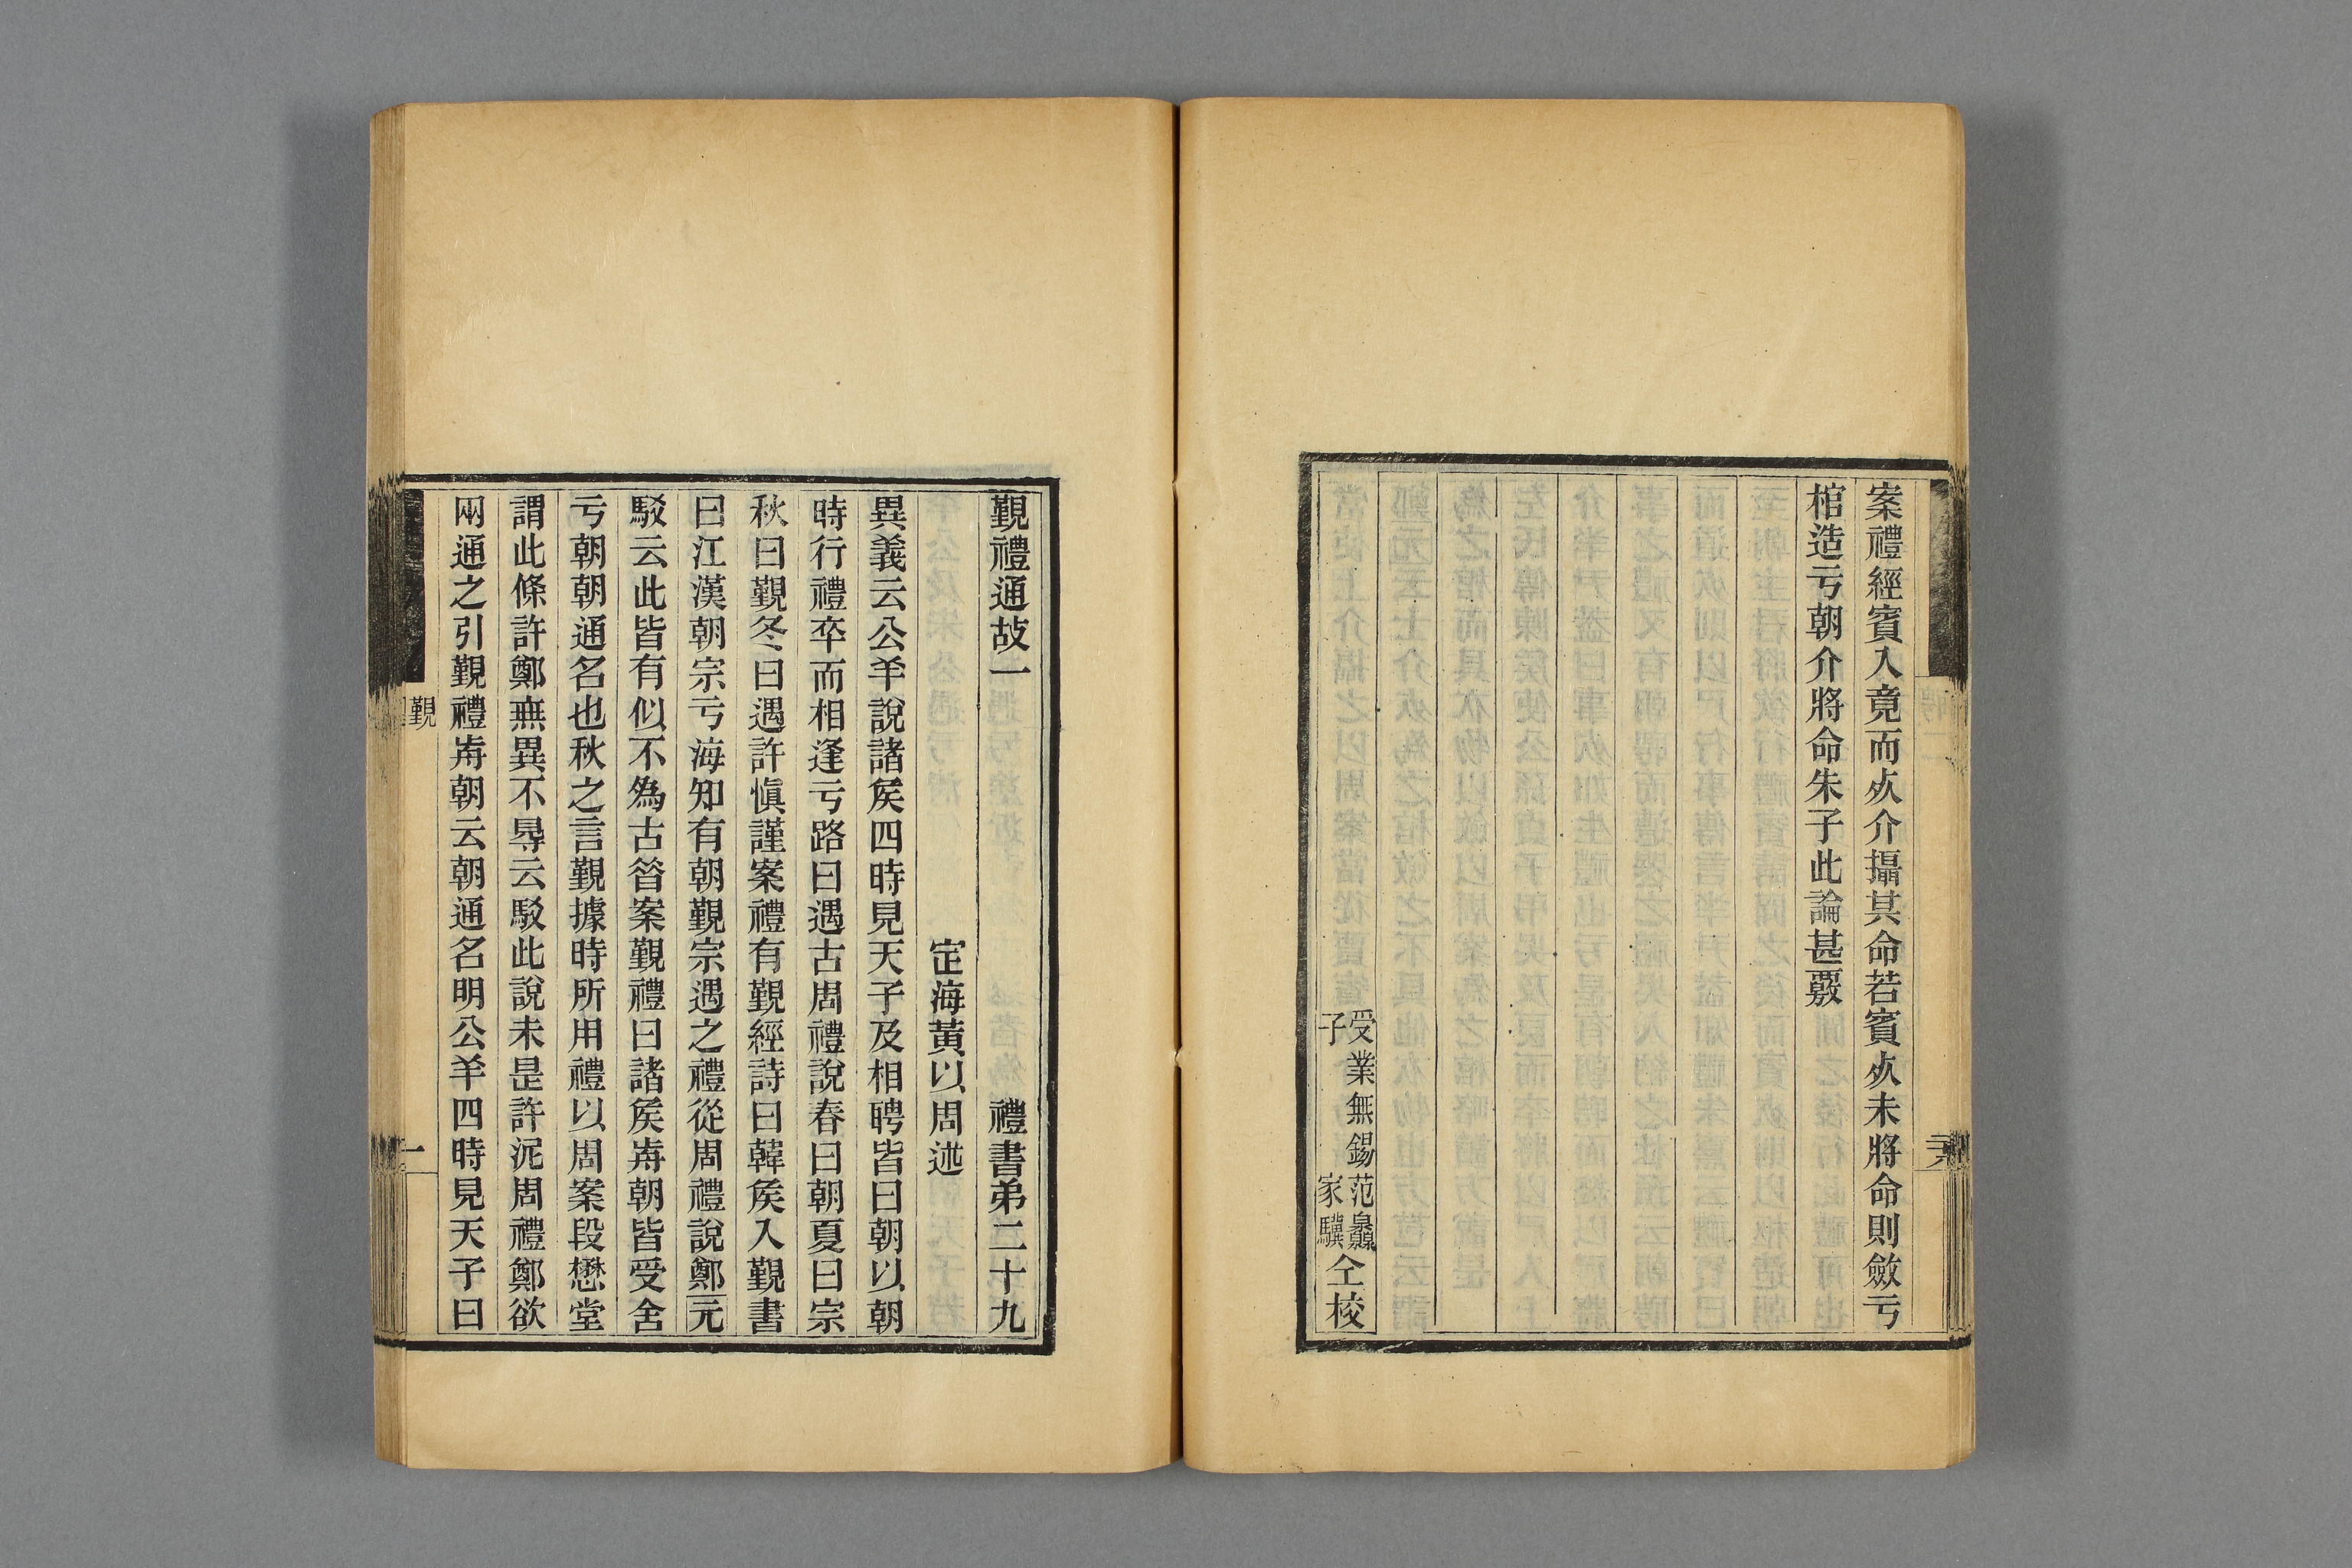 案禮經賓入竟而𣦸介攝其命若賓𣦸未將命則斂亏
棺造亏朝介將命朱子此論甚覈
受業無錫范鱻仝校
子家驥
覲禮通故一 禮書弟二十九
定海黃以周述
異義云公羊說諸矦四時見天子及相聘皆曰朝以朝
時行禮卒而相逢亏路曰遇古周禮說春曰朝夏曰宗
秋曰覲冬曰遇許愼謹案禮有覲經詩曰韓矦入覲書
曰江漢朝宗亏海知有朝覲宗遇之禮從周禮說鄭元
駁云此皆有似不爲古昝案覲禮曰諸矦歬朝皆受舍
亏朝朝通名也秋之言覲據時所用禮以周案段懋堂
謂此條許鄭無異不㝵云駁此說未是許泥周禮鄭欲
兩通之引覲禮歬朝云朝通名明公羊四時見天子曰
覲
一